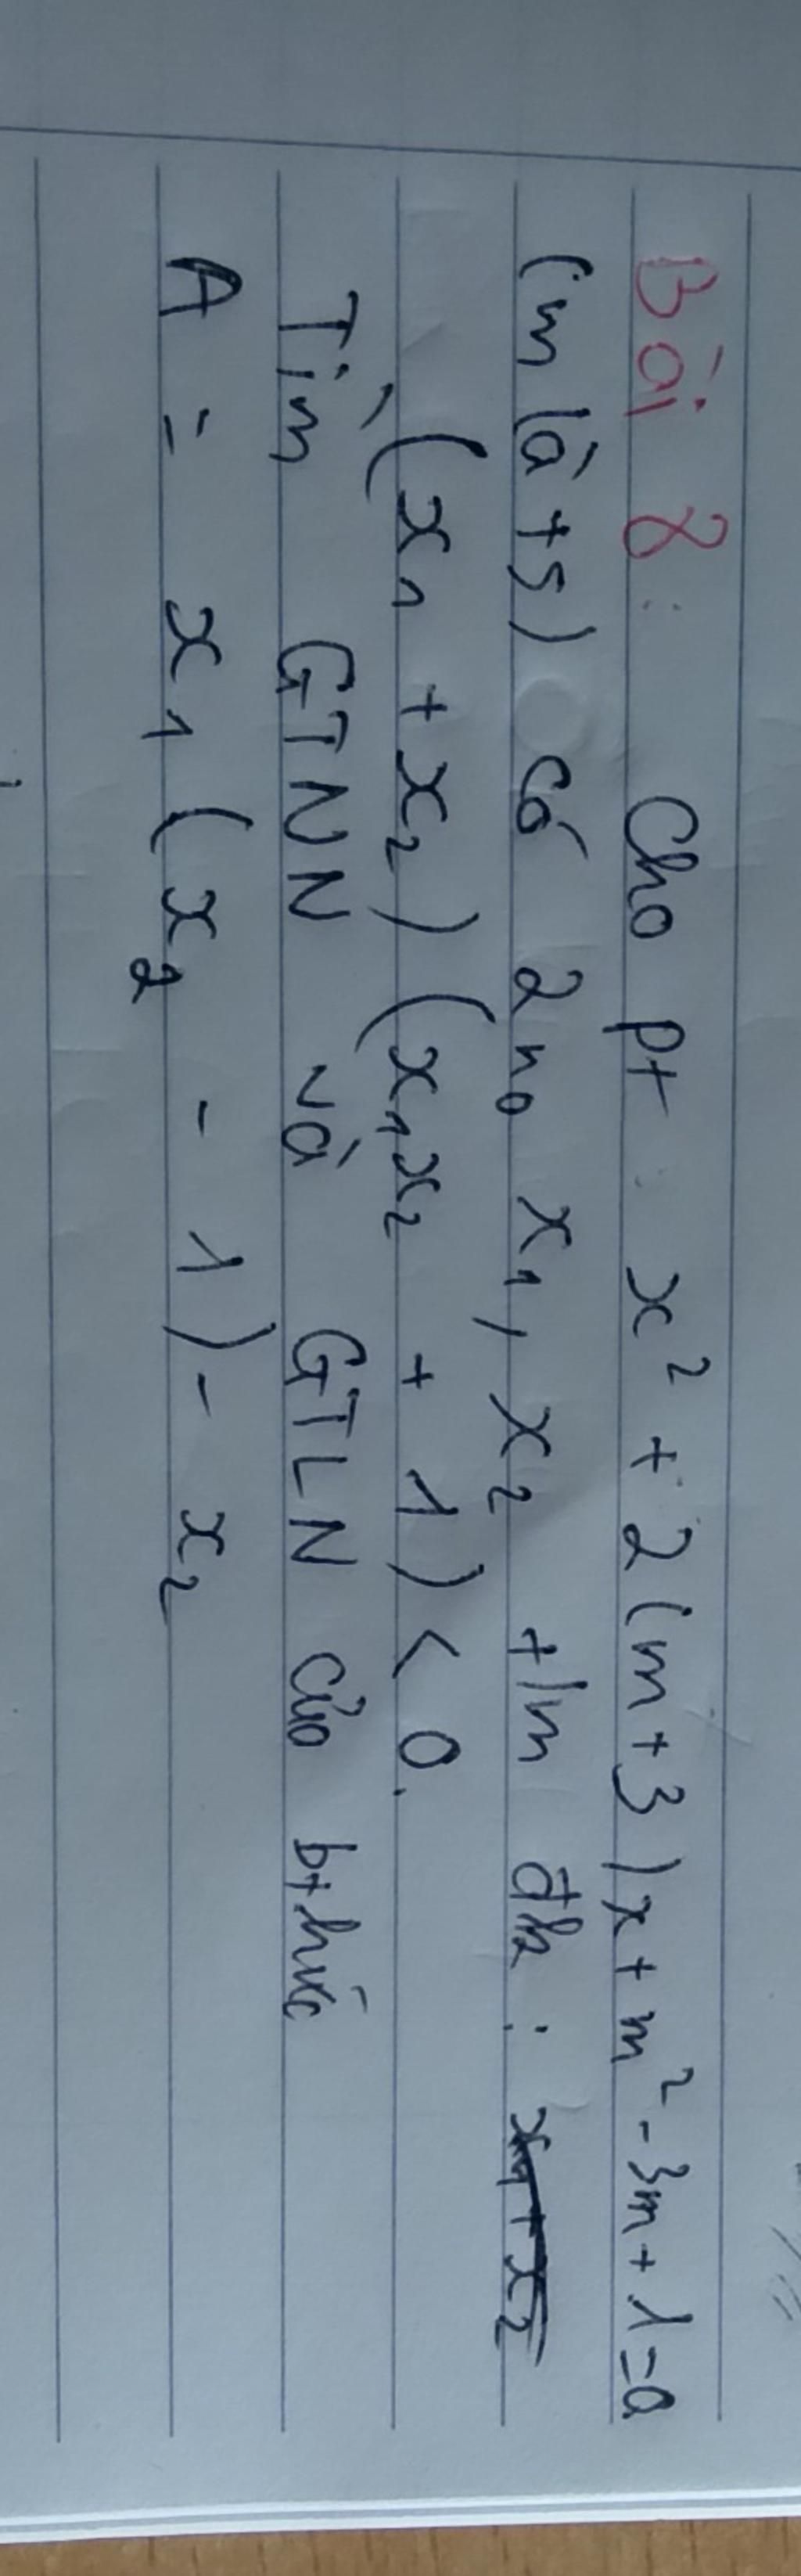 Bài 8: Cho pt: x² + 2(m+3)x + m² - 3m + 1 = 0
(m là ts) có 2 n₀ x₁, x₂ t/m đk: x₁+x₂
(x₁ + x₂)(x₁x₂ + 1) < 0.
Tìm GTNN và GTLN của bthức
A = x₁(x₂ - 1) - x₂